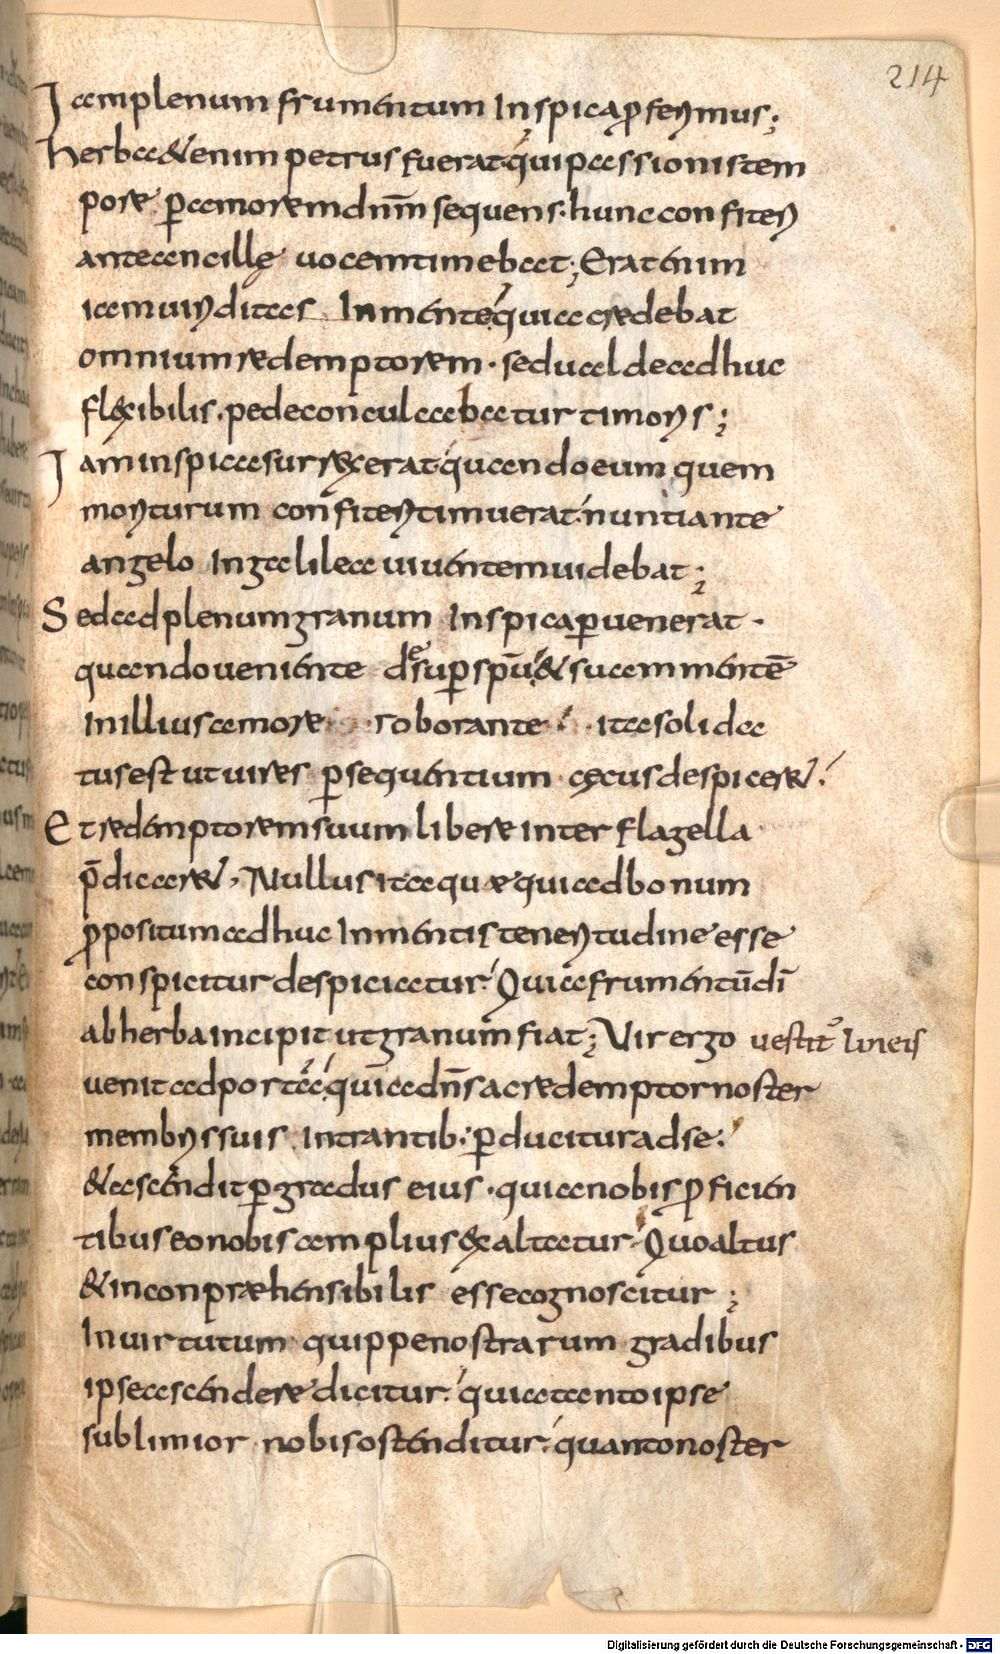 214
Iam plenum frumentum In spica ꝓferimus;
herba & enim petrus fuerat. qui passionis tem
pore ꝑ amorem dn̄m sequens. hunc confiteri
ante ancillę uocem timebat; Erat enim
iam uiriditas In mente quia credebat
omnium redemptorem. sed ualde adhuc
flexibilis. pede conculcabatur timoris;
Iam in spica surrexerat. quando eum quem
moriturum confiteri timuerat. nuntiante
angelo In galilea uiuentem uidebat;
Sed ad plenum granum In spica ꝑuenerat.
quando ueniente desuꝑ sp̄u & suam mentē
In illius amore roborante. ita solida
tus est ut uires ꝑsequentium cęcus despiceret.
Et redemptorem suum libere inter flagella
p̄dicaret, Nullus itaquæ qui ad bonum
ꝓpositum adhuc In mentis teneritudine esse
conspicitur despiciatur. Quia frumentū dī
ab herba incipit ut granum fiat; Vir ergo uestitꝰ lineis
uenit ad porta quia dn̄s ac redemptor noster
membris suis Intrantib. ꝑducitur ad se.
& ascendit ꝑ gradus eius. quia nobis ꝓficien
tibus eo nobis amplius exaltatur. Quo altus
& inconpræhensibilis esse cognoscitur;
In uirtutum quippe nostrarum gradibus
ipse ascendere dicitur. quia tanto ipse
sublimior nobis ostenditur. quanto noster
Digitalisierung gefördert durch die Deutsche Forschungsgemeinschaft - DFG